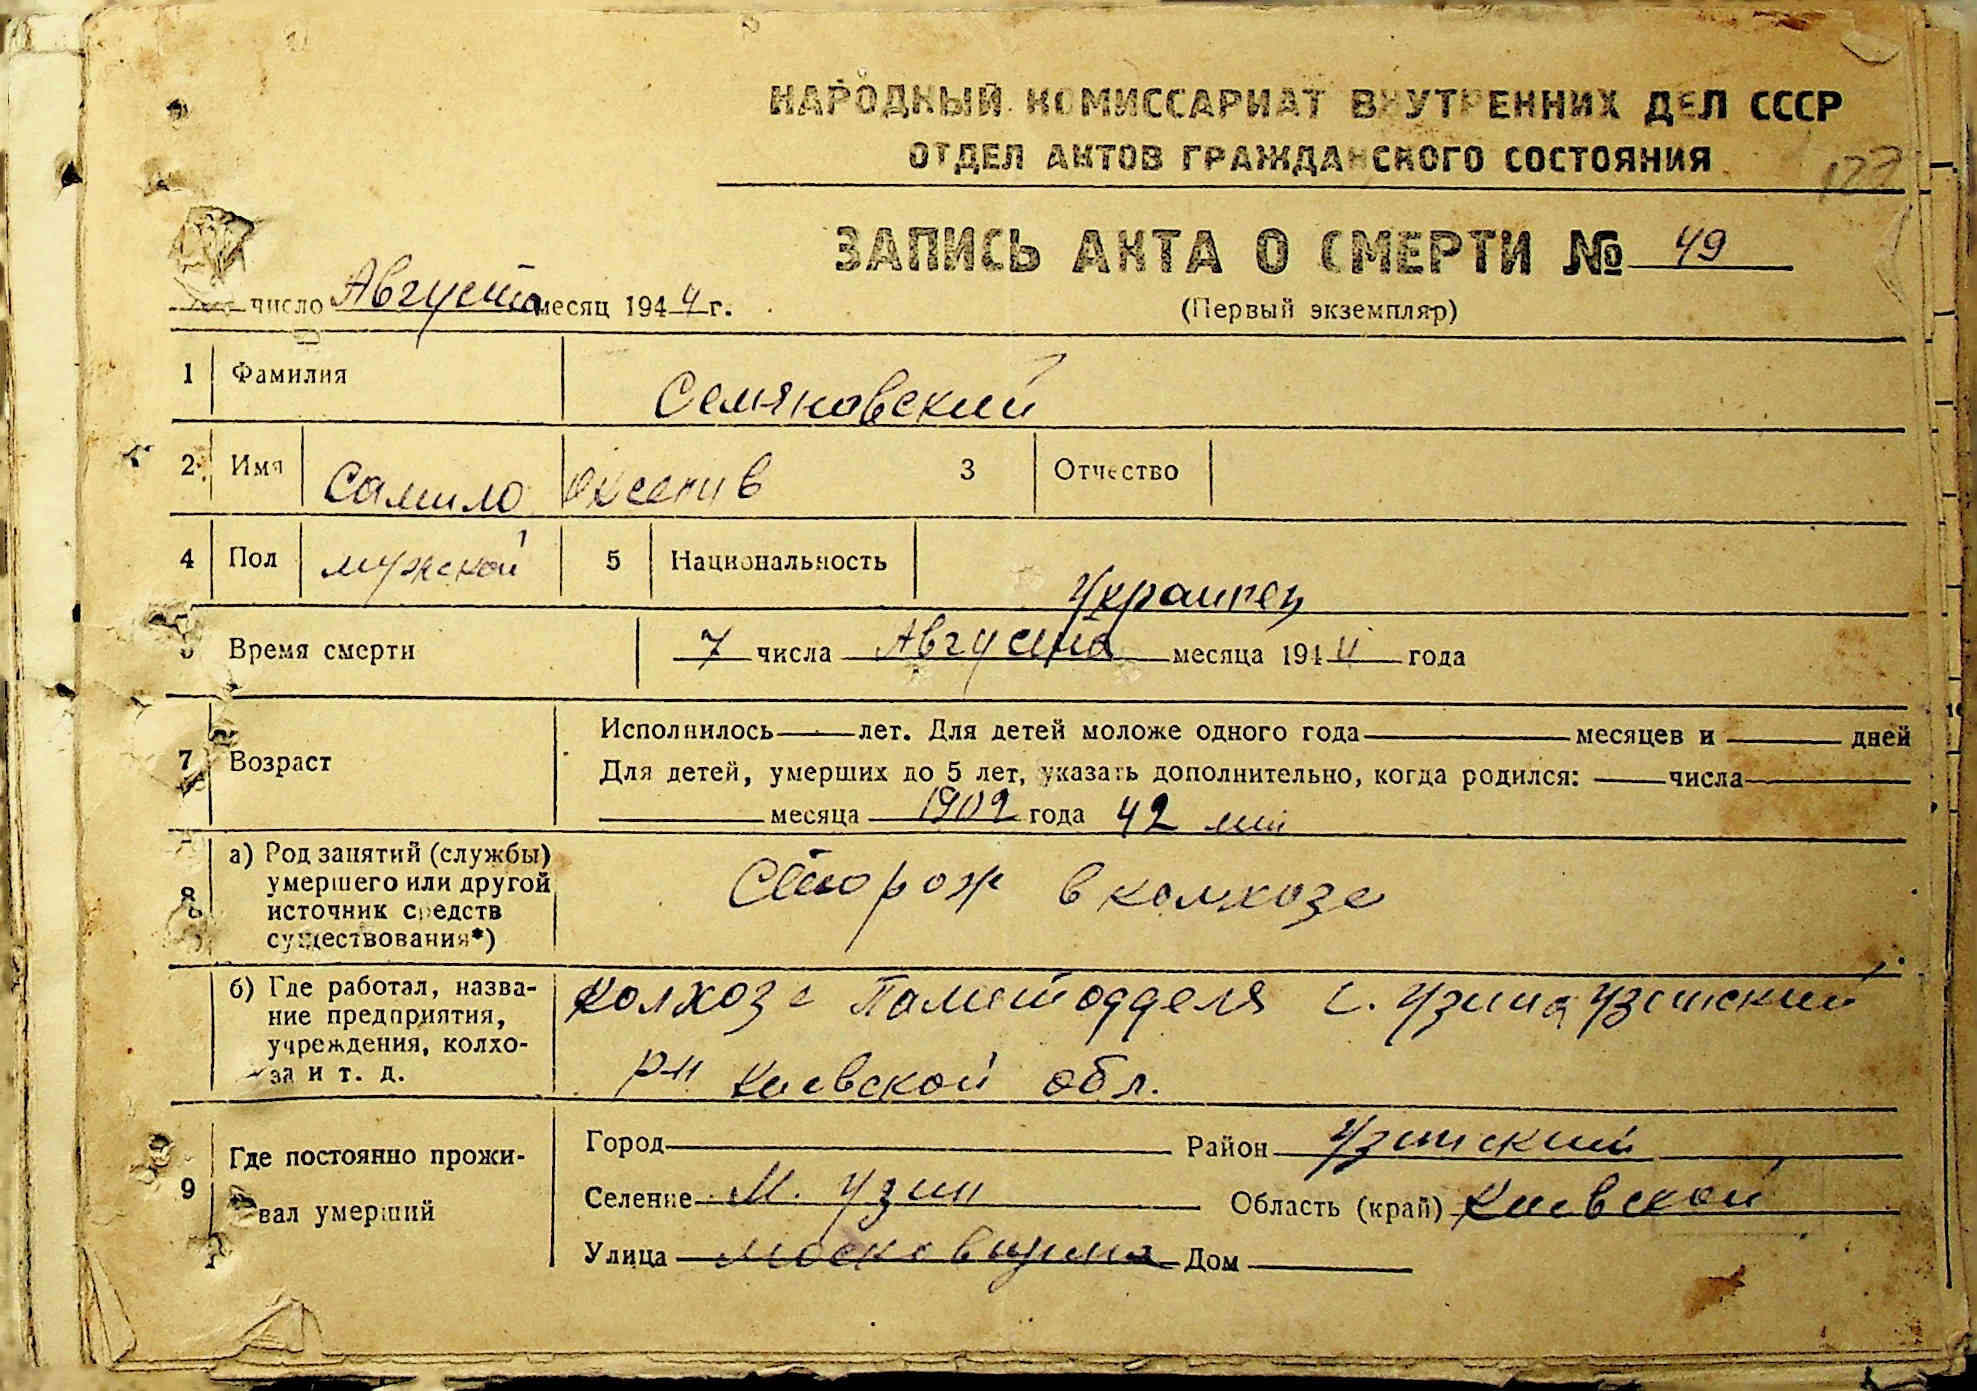 НАРОДНЫЙ КОМИССАРИАТ ВНУТРЕННИХ ДЕЛ СССР
ОТДЕЛ АКТОВ ГРАЖДАНСКОГО СОСТОЯНИЯ
127
ЗАПИСЬ АКТА О СМЕРТИ № 49
(Первый экземпляр)
число Августа месяц 1944 г.
1 Фамилия Семяновский
2 Имя Самило Оксенив 3 Отчество
4 Пол мужской 5 Национальность Украинец
Время смерти 7 числа Августа месяца 1944 года
7 Возраст Исполнилось лет. Для детей моложе одного года месяцев и дней
Для детей, умерших до 5 лет, указать дополнительно, когда родился: числа
месяца 1902 года 42
8 а) Род занятий (службы) умершего или другой источник средств существования*) Сторож в колхозе
б) Где работал, назва-
ние предприятия,
учреждения, колхо-
за и т. д.
Колхозе с. Узина Узинский
р-н Киевской обл.
9 Где постоянно прожи-
вал умерший
Город Район Узинский
Селение М. Узин Область (край) Киевской
Улица Дом